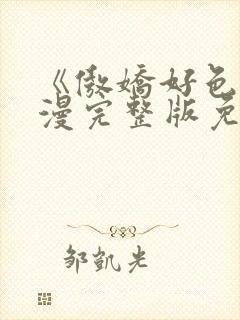 《傲娇好色
漫完整版免
邹凯光